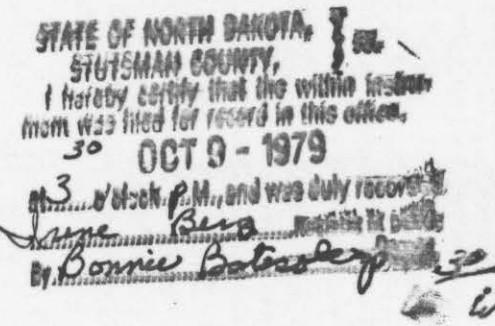 STATE OF NORTH DAKOTA,
STUTSMAN COUNTY, } ss.
I hereby certify that the within instru-
ment was filed for record in this office,
30
OCT 9 - 1979
at 3 o'clock P.M., and was duly recorded
Irene Berg
By Bonnie
30